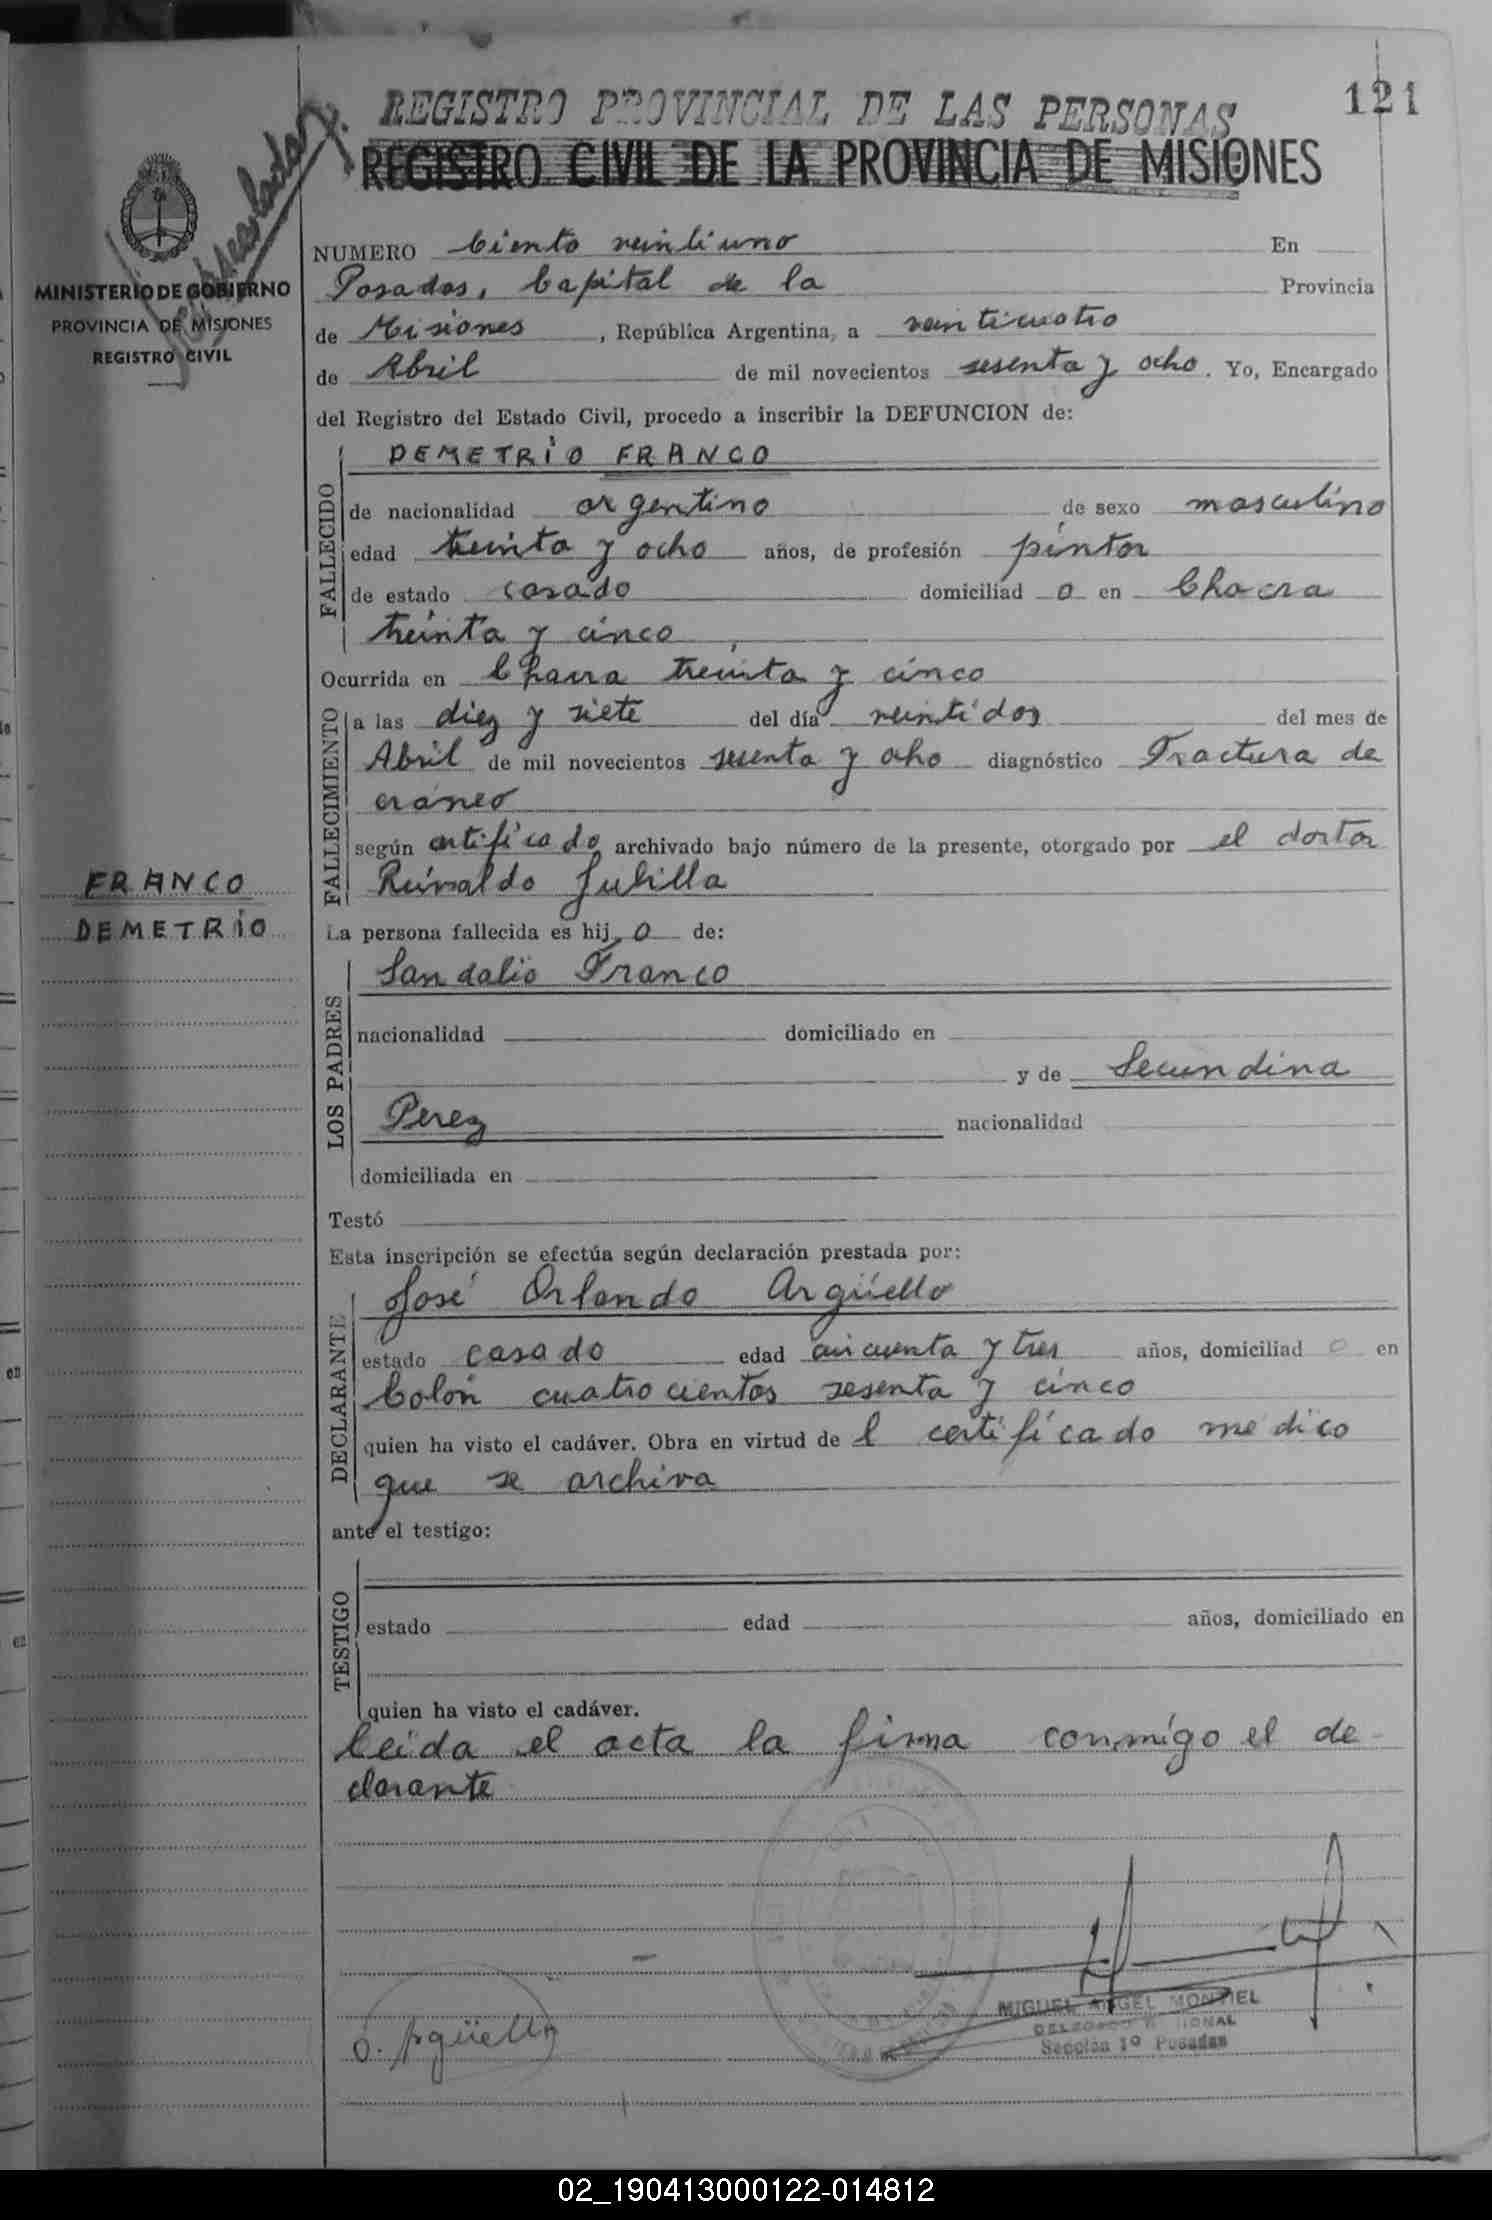 121
REGISTRO PROVINCIAL DE LAS PERSONAS
REGISTRO CIVIL DE LA PROVINCIA DE MISIONES
MINISTERIO DE GOBIERNO
PROVINCIA DE MISIONES
REGISTRO CIVIL
NUMERO Ciento veintiuno En
Posadas, Capital de la Provincia
de Misiones, República Argentina, a veinticuatro
de Abril de mil novecientos sesenta y ocho. Yo, Encargado
del Registro del Estado Civil, procedo a inscribir la DEFUNCION de:
FALLECIDO
DEMETRIO FRANCO
de nacionalidad argentino de sexo masculino
edad treinta y ocho años, de profesión pintor
de estado casado domiciliad o en Chacra
treinta y cinco
Ocurrida en Chacra treinta y cinco
FALLECIMIENTO
a las diez y siete del día veintidos del mes de
Abril de mil novecientos sesenta y ocho diagnóstico Fractura de
cráneo
según certificado archivado bajo número de la presente, otorgado por el doctor
Reinaldo Julilla
FRANCO
DEMETRIO
La persona fallecida es hij o de:
LOS PADRES
Sandalio Franco
nacionalidad domiciliado en
y de Secundina
Perez nacionalidad
domiciliada en
Testó
Esta inscripción se efectúa según declaración prestada por:
DECLARANTE
José Orlando Argüello
estado casado edad cincuenta y tres años, domiciliad o en
Colón cuatrocientos sesenta y cinco
quien ha visto el cadáver. Obra en virtud de l certificado médico
que se archiva
ante el testigo:
TESTIGO
estado edad años, domiciliado en
quien ha visto el cadáver.
Leida el acta la firma conmigo el de-
clarante
O. Argüello
MIGUEL ANGEL MONTIEL
Sección 1º Posadas
02_190413000122-014812